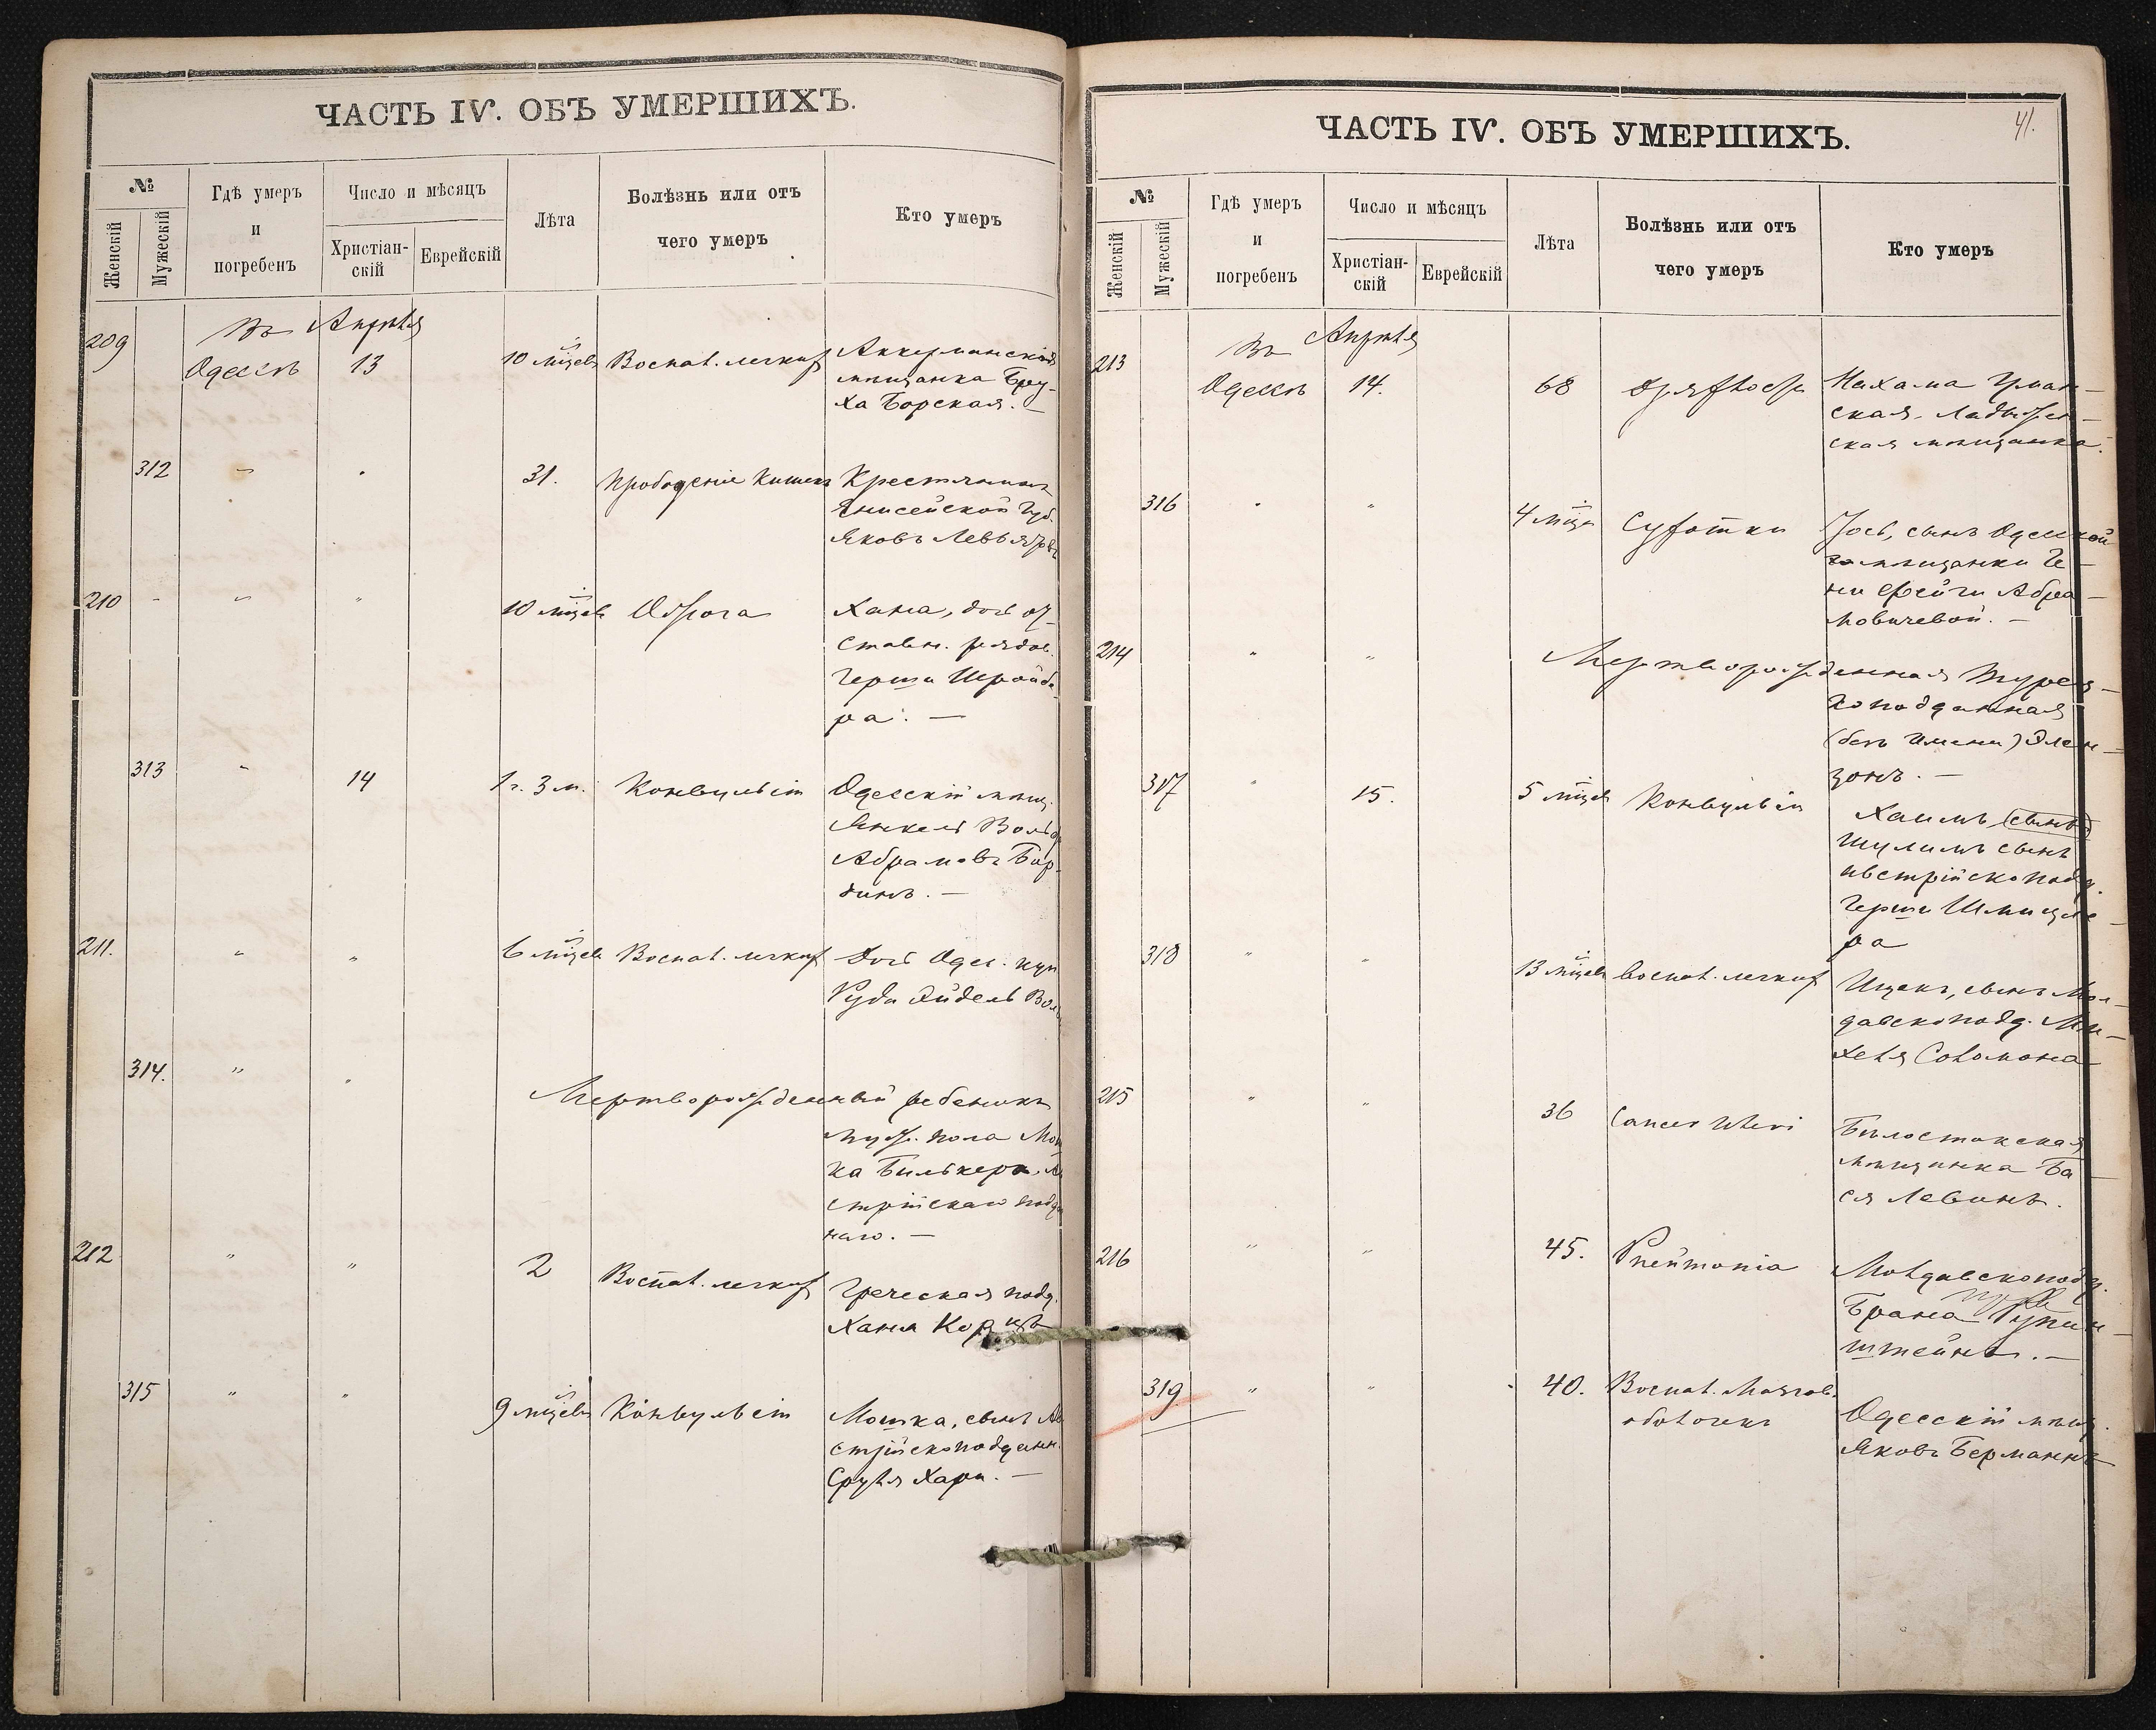 ЧАСТЬ IV. ОБЪ УМЕРШИХЪ.
№
Женскій
Мужескій
Гдѣ умеръ
и
погребенъ
Число и мѣсяцъ
Христіан-
скій
Еврейскій
Лѣта
Болѣзнь или отъ
чего умеръ
Кто умеръ
209
Въ Апрѣля
Одессѣ 13 10 мѣсцевъ Воспал. легкихъ Аккерманская
мѣщанка Бру-
ха Борская. —
312 " " 31. Прободеніе кишекъ Крестьянинъ
Енисейской Губ.
Яковъ
210 - " " 10 мѣсцевъ Хана, дочь от-
ставн. рядов.
Герша Шрайбе-
ра. —
313 " 14 1 г. 3 м. Конвульсіи Одесскій мѣщ.
Янкель
Абрамовъ Бор-
динъ. —
211. " " 6 мѣсцевъ Воспал. легкихъ Дочь Одес. куп
Руда Эйдель
314. " "
Мертворожденный ребенокъ
муж. пола Мош
ка Билькера, Ав
стрійскаго подд
наго. —
212 " " 2 Воспал. легкихъ Греческая подд.
Хана
315 " " 9 мѣсцевъ Конвульсіи Мошка, сынъ Ав
стрійскоподданн.
Сруля Хари. —
ЧАСТЬ IV. ОБЪ УМЕРШИХЪ.
41.
№
Женскій
Мужескій
Гдѣ умеръ
и
погребенъ
Число и мѣсяцъ
Христіан-
скій
Еврейскій
Лѣта
Болѣзнь или отъ
чего умеръ
Кто умеръ
213
Въ Апрѣля
Одессѣ 14. 68 Дряхлость Нихама Уман-
ская. Ладыжен-
ская мѣщанка.
316 " " 4 мѣсца Сухотки Іось, сынъ Одесской
мѣщанки Ге-
ни Фейги Абра-
мовичевой. —
214 " "
Мертворожденная Турец-
коподданная
(безъ имени) Элен-
зонъ. —
317 " 15. 5 мѣсцевъ Конвульсіи Хаимъ (сынъ)
Шулимъ сынъ
австрійскоподд.
Герша Шмицле-
ра
318 " " 13 мѣсцевъ Воспал. легкихъ Ицекъ, сынъ Мол-
давскоподд. Ми-
хеля Соломона
215 " " 36 Cancer Uteri Бѣлостокская
мѣщанка Ба-
ся Левинъ.
216 " " 45. Pneumonia Молдавскоподд.
Брана
штейнъ. —
319 " " 40. Воспал. Мозгов.
оболочекъ Одесскій мѣщ.
Яковъ Берманнъ